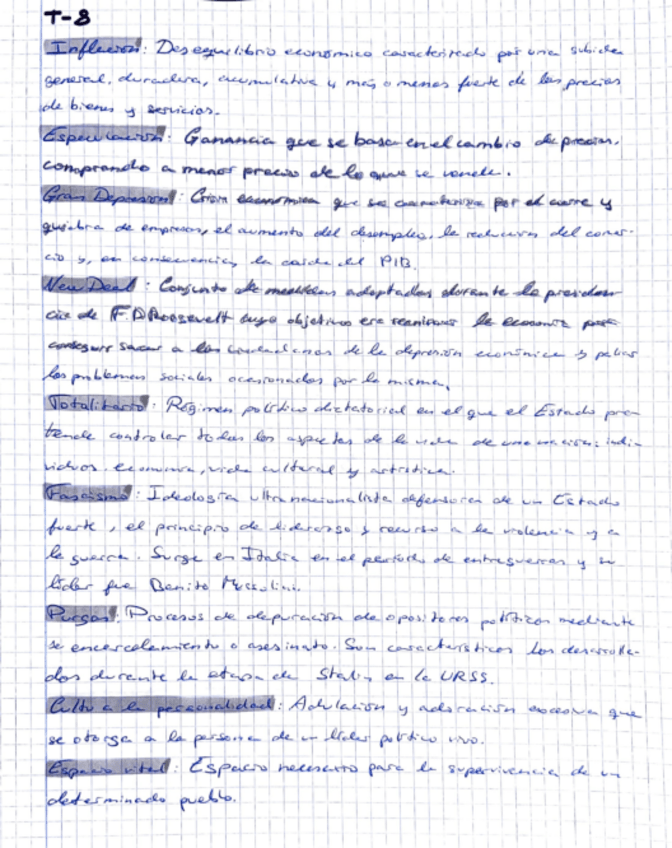 T-8
Inflación: Desequilibrio económico caracterizado por una subida
general, duradera, acumulativa y más o menos fuerte de los precios
de bienes y servicios.
Especulación: Ganancia que se basa en el cambio de precios,
comprando a menor precio de lo que se vende.
Gran Depresión: Crisis económica que se caracteriza por el cierre y
quiebra de empresas, el aumento del desempleo, la reducción del comer-
cio y, en consecuencia, la caída del PIB.
New Deal: Conjunto de medidas adoptadas durante la presiden
cia de F.D Roosevelt cuyo objetivo era reanimar la economía para
conseguir sacar a los ciudadanos de la depresión económica y paliar
los problemas sociales ocasionados por la misma.
Totalitario: Régimen político dictatorial en el que el Estado pre
tende controlar todos los aspectos de la vida de una nación: indi-
viduos, economía, vida cultural y artística.
Fascismo: Ideología ultranacionalista defensora de un Estado
fuerte, el principio de liderazgo y recurso a la violencia y a
la guerra. Surge en Italia en el período de entreguerras y su
líder fue Benito Mussolini.
Purgas: Procesos de depuración de opositores políticos mediante
su encarcelamiento o asesinato. Son características las desarrolla-
das durante la etapa de Stalin en la URSS.
Culto a la personalidad: Adulación y adoración excesiva que
se otorga a la persona de un líder político vivo.
Espacio vital: Espacio necesario para la supervivencia de un
determinado pueblo.